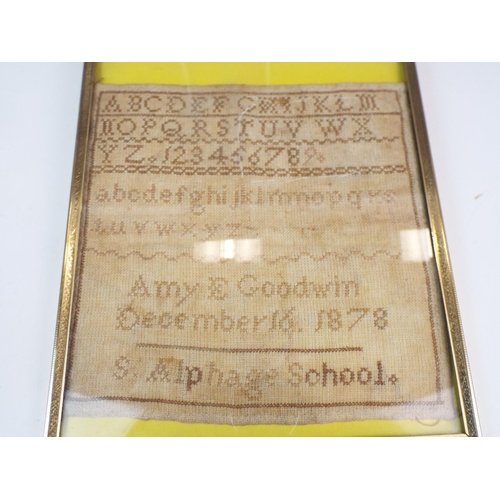 ABCDEFG JKLM
NOPQRSTUVWX
YZ. 123456789
abcdefghijklmnopqrs
tuvwxyz
Amy E Goodwin
December 16. 1878
St Alphage School.